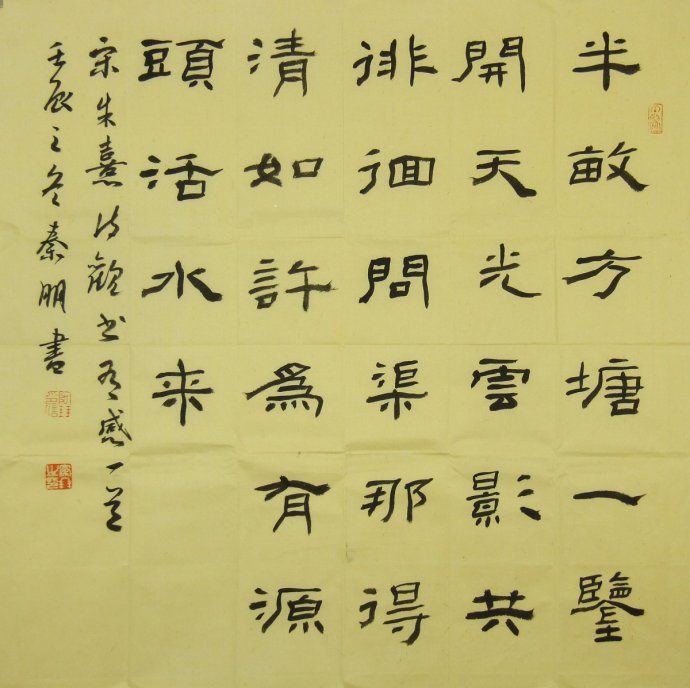 半畝方塘一鑒
開天光雲影共
徘徊問渠那得
清如許為有源
頭活水来
宋朱熹诗觀书有感一首
壬辰之冬秦朋書